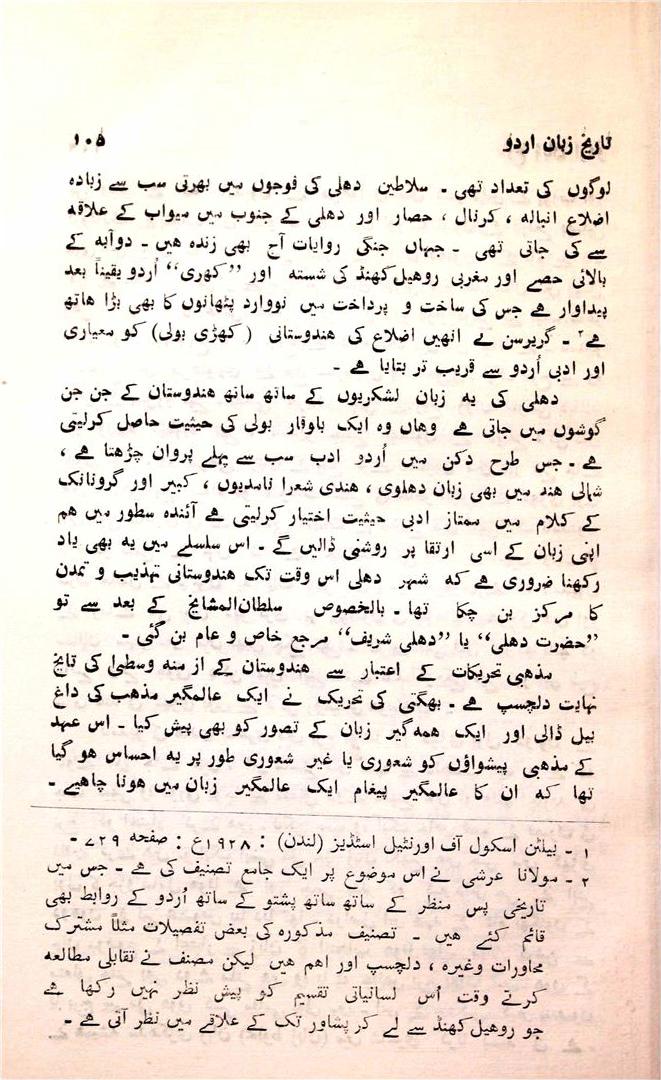 تاریخ زبان اردو ۱۰۵
لوگوں کی تعداد تھی ۔ سلاطین دھلی کی فوجوں میں بھرتی سب سے زیادہ
اضلاع انبالہ ، کرنال ، حصار اور دھلی کے جنوب میں میواب کے علاقہ
سے کی جاتی تھی ۔ جہاں جنگی روایات آج بھی زندہ ھیں ۔ دوآبہ کے
بالائی حصے اور مغربی روھیل کھنڈ کی شستہ اور ”کھری“ اُردو یقیناً بعد
پیداوار ہے جس کی ساخت و پرداخت میں نووارد پٹھانوں کا بھی بڑا ھاتھ
ہے۲ ۔ گریرسن نے انھیں اضلاع کی ھندوستانی (کھڑی بولی) کو معیاری
اور ادبی اُردو سے قریب تر بتایا ہے ۔
دھلی کی یہ زبان لشکریوں کے ساتھ ساتھ ھندوستان کے جن جن
گوشوں میں جاتی ہے وھاں وہ ایک باوقار بولی کی حیثیت حاصل کرلیتی
ہے ۔ جس طرح دکن میں اُردو ادب سب سے پہلے پروان چڑھتا ہے ،
شمالی ھند میں بھی زبان دھلوی ، ھندی شعرا نامدیوں ، کبیر اور گرونانک
کے کلام میں ممتاز ادبی حیثیت اختیار کرلیتی ہے آئندہ سطور میں ھم
اپنی زبان کے اسی ارتقا پر روشنی ڈالیں گے ۔ اس سلسلے میں یہ بھی یاد
رکھنا ضروری ہے کہ شہر دھلی اس وقت تک ھندوستانی تہذیب و تمدن
کا مرکز بن چکا تھا ۔ بالخصوص سلطان المشایخ کے بعد سے تو
”حضرت دھلی“ یا ”دھلی شریف“ مرجع خاص و عام بن گئی ۔
مذھبی تحریکات کے اعتبار سے ھندوستان کے از منہ وسطیٰ کی تایخ
نہایت دلچسپ ہے ۔ بھگتی کی تحریک نے ایک عالمگیر مذھب کی داغ
بیل ڈالی اور ایک ھمہ گیر زبان کے تصور کو بھی پیش کیا ۔ اس عہد
کے مذھبی پیشواؤں کو شعوری یا غیر شعوری طور پر یہ احساس ھو گیا
تھا کہ ان کا عالمگیر پیغام ایک عالمگیر زبان میں ھونا چاھیے ۔
۱ ۔ بیلٹن اسکول آف اورنٹیل اسٹڈیز (لندن) : ۱۹۲۸ع : صفحہ ۷۲۹ ۔
۲ ۔ مولانا عرشی نے اس موضوع پر ایک جامع تصنیف کی ہے ۔ جس میں
تاریخی پس منظر کے ساتھ ساتھ پشتو کے ساتھ اُردو کے روابط بھی
قائم کئے ھیں ۔ تصنیف مذکورہ کی بعض تفصیلات مثلاً مشترک
محاورات وغیرہ ، دلچسپ اور اھم ھیں لیکن مصنف نے تقابلی مطالعہ
کرتے وقت اُس لسانیاتی تقسیم کو پیش نظر نہیں رکھا ہے
جو روھیل کھنڈ سے لے کر پشاور تک کے علاقے میں نظر آتی ہے ۔